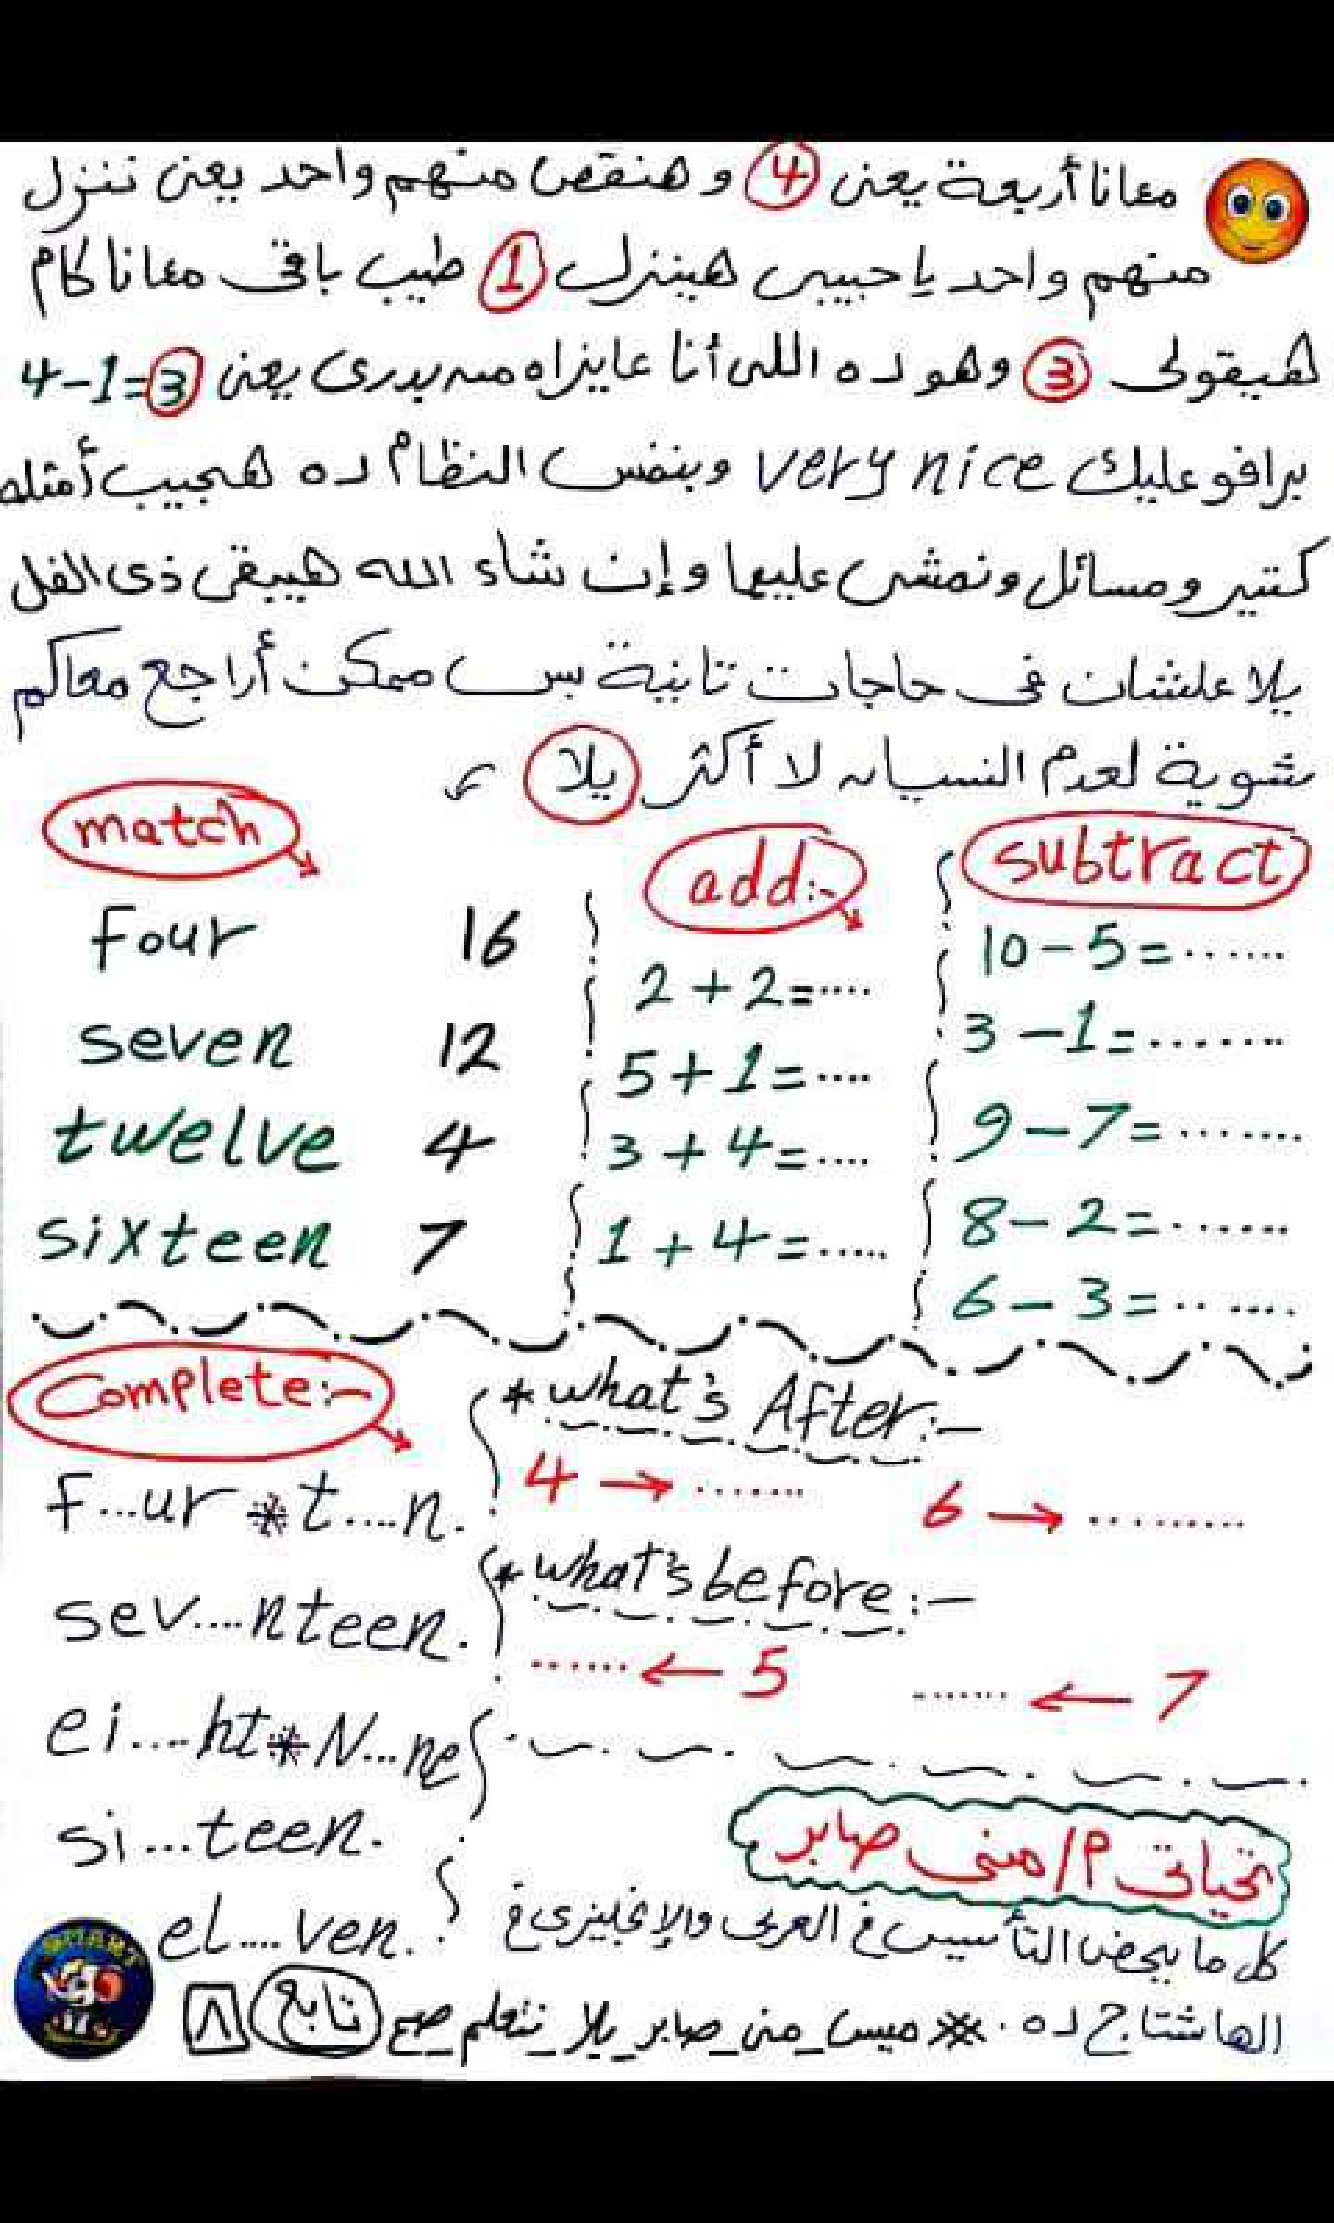 معانا أربعة يعنى 4 و هنقص منهم واحد يعنى ننزل
منهم واحد يا حبيبى هينزل 1 طيب باقى معانا كام
هيقولى 3 وهو ده اللى أنا عايزاه من بدرى يعنى 4-1=3
برافو عليك very nice وبنفس النظام ده هجيب أمثله
كتير ومسائل ونمشى عليها وإن شاء الله هيبقى ذى الفل
يلا علشان فى حاجات تانية بس ممكن أراجع معاكم
شوية لعدم النسيان لا أكثر يلا
match
four 16
seven 12
twelve 4
sixteen 7
add:-
2 + 2 = ....
5 + 1 = ....
3 + 4 = ....
1 + 4 = .....
subtract
10 - 5 = .......
3 - 1 = ........
9 - 7 = ........
8 - 2 = .......
6 - 3 = .......
Complete:-
F...ur * t....n.
sev....nteen.
ei....ht * N...ne
si...teen.
el....ven.
* what's After:-
4 → ....... 6 → .........
* what's before:-
...... ← 5 ...... ← 7
تحياتى م/ منى صابر
كل ما يخص التأسيس فى العربى والإنجليزى فى
الهاشتاج ده . ** ميس_منى_صابر_يلا_نتعلم_صح تابع ٨